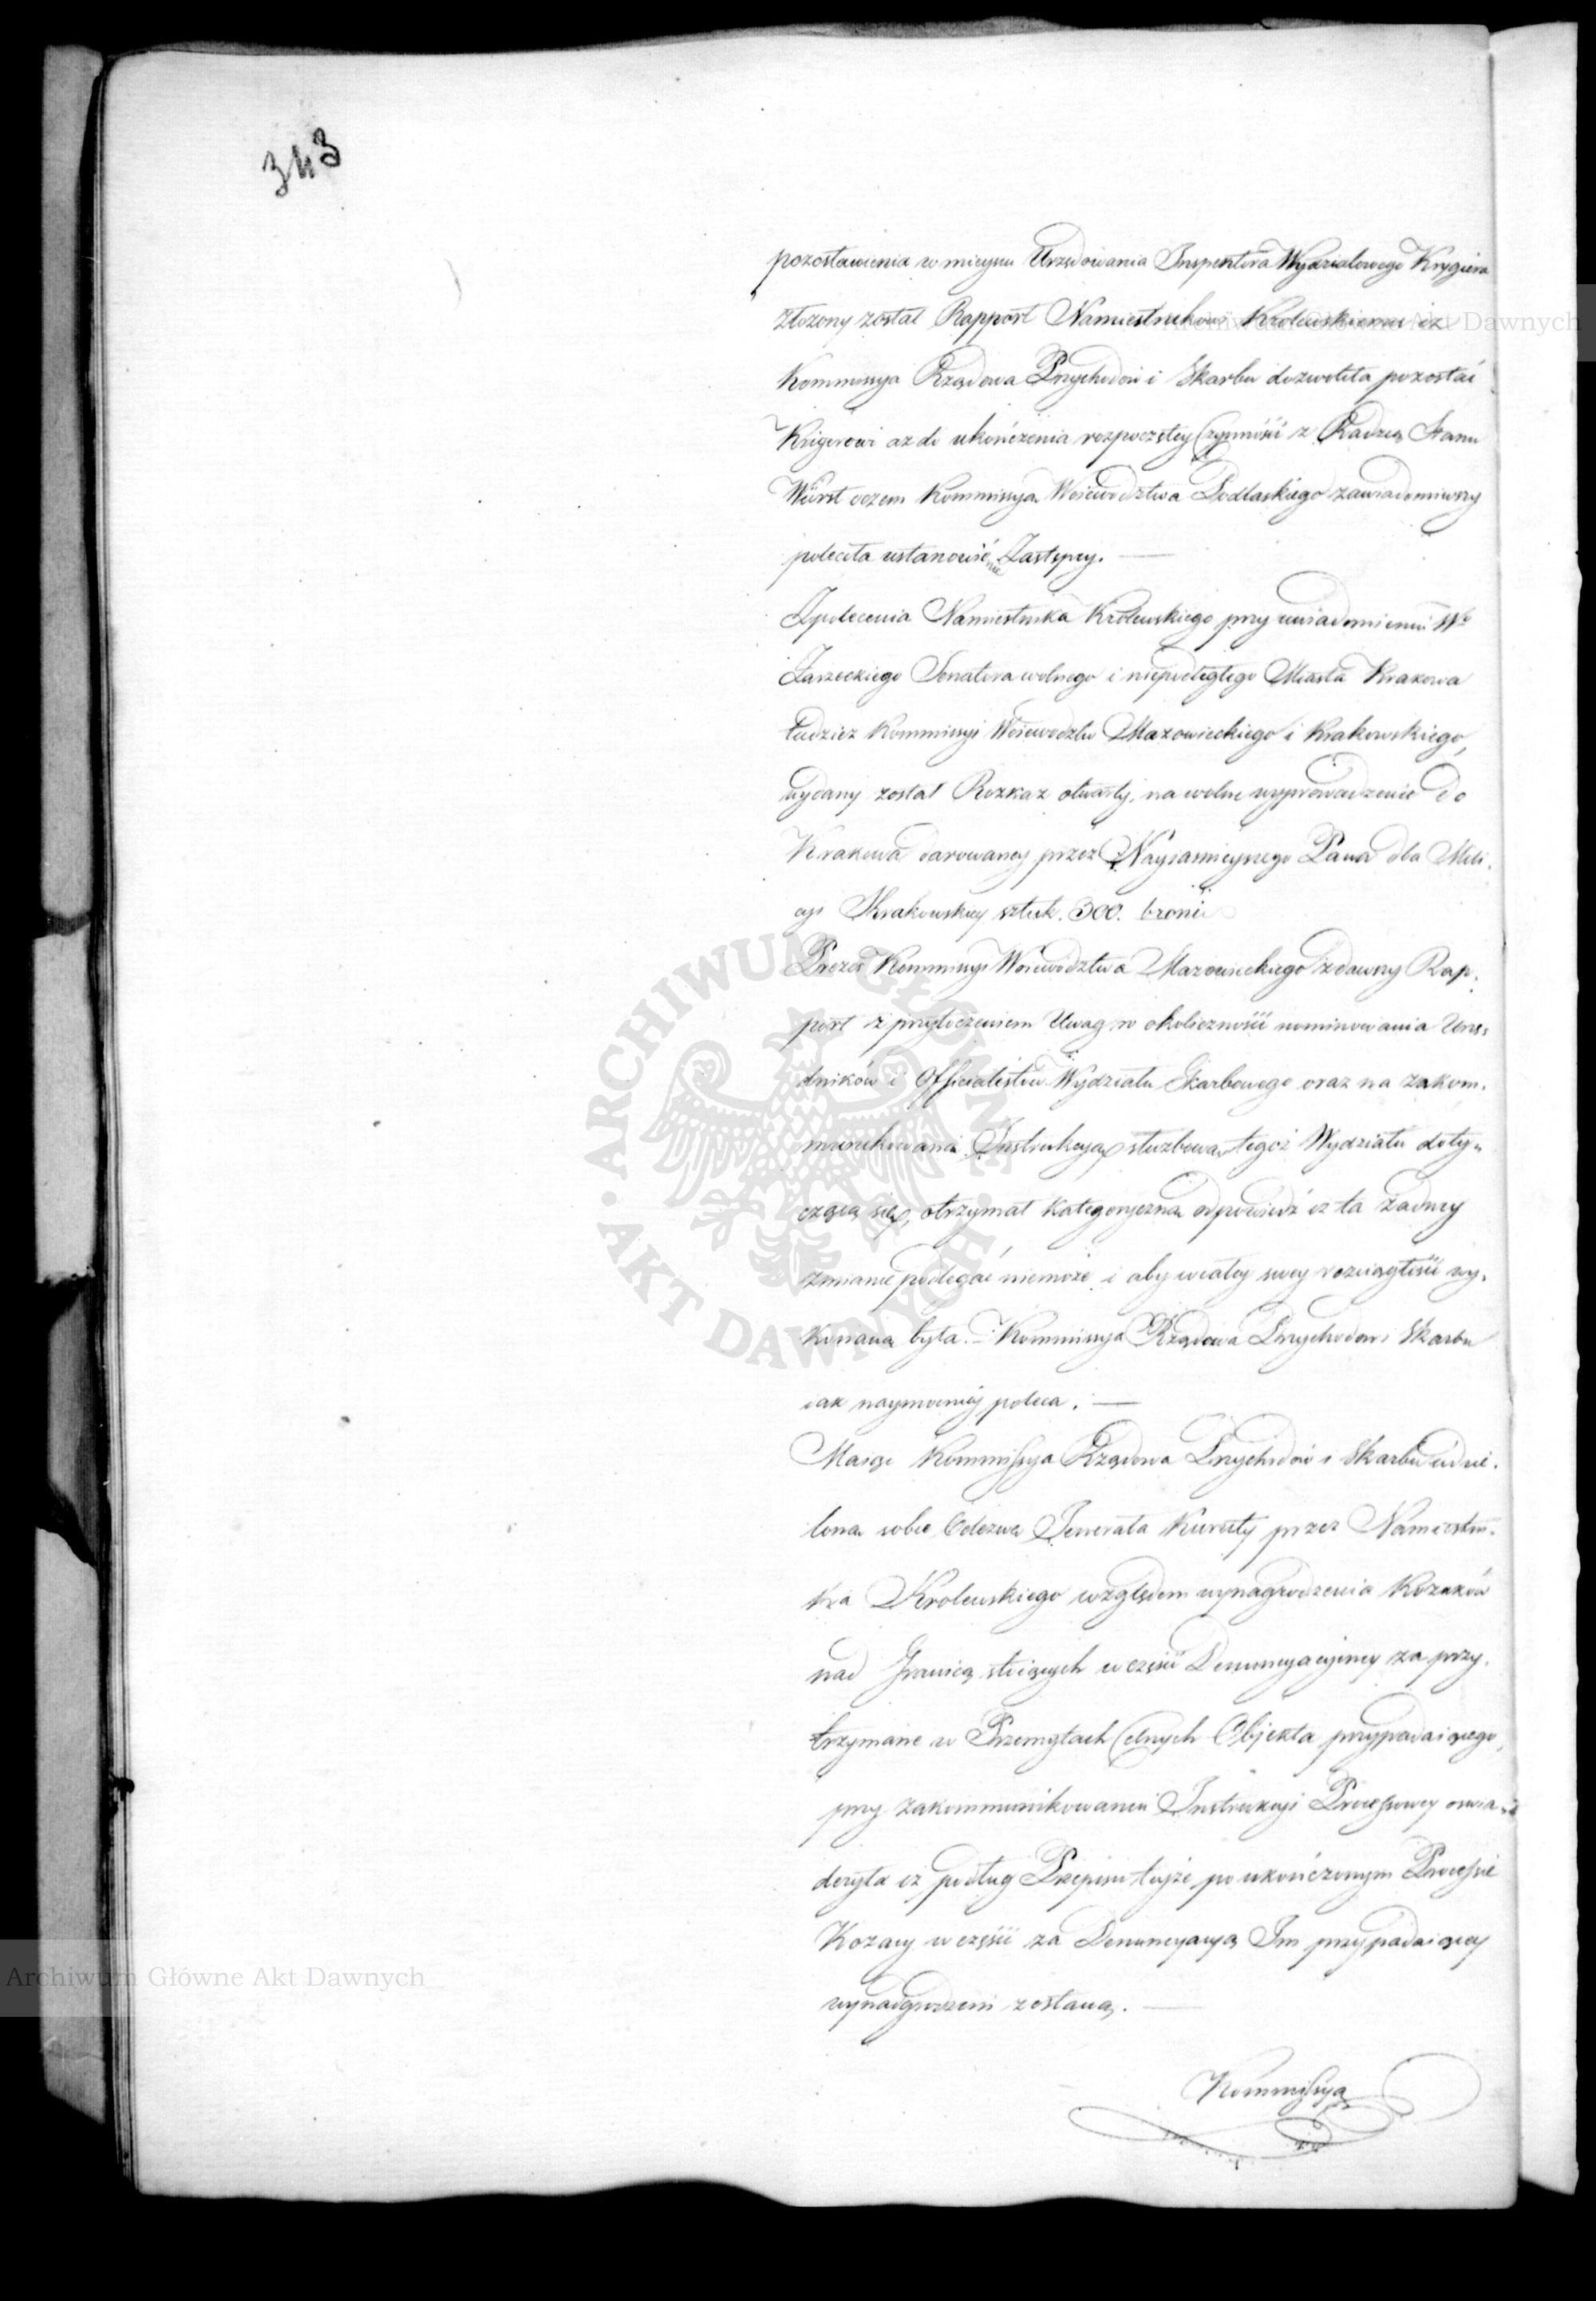 343
pozostawienia w mieyscu Urzędowania Inspektora Wydziałowego Krygiera
złożony został Rapport Namiestnikowi Krolewskiemu iż
Kommissya Rządowa Przychodów i Skarbu dozwoliła pozostać
Krigerowi aż do ukończenia rozpoczętey Czynności z Radzcą Stanu
Würst oczem Kommissyą Woiewództwa Podlaskiego zawiadomiwszy
poleciła ustanowić Zastępcy. —
Z polecenia Namiestnika Krolewskiego przy uwiadomieniu Wo
Zarzeckiego Senatora wolnego i niepodległego Miasta Krakowa
tudzież Kommissyi Woiewodztw Mazowieckiego i Krakowskiego,
wydany został Rozkaz otwarty, na wolne wyprowadzenie do
Krakowa darowaney przez Nayiasnieyszego Pana dla Mili-
cyi Krakowskiey sztuk. 300. broni
Prezes Kommissyi Woiewodztwa Mazowieckiego zdawszy Rap-
port z przyłoczeniem Uwag w okoliczności nominowania Urzę-
dników i Officialistów Wydziału Skarbowego oraz na zakom-
munikowaną Instrukcyą służbową tegoż Wydziału doty-
czącą się, otrzymał kategoryczną odpowiedź iż ta żadney
zmianie podlegać niemoże i aby w całey swey rozciągłości wy-
konaną była. — Kommissya Rządowa Przychodow i Skarbu
iak naymocniey poleca. —
Maiąc Kommissya Rządowa Przychodów i Skarbu udzie-
loną sobie Odezwę Jenerała Kuruty przez Namiestni-
ka Krolewskiego względem wynagrodzenia Kozaków
nad Granicą stoiących w części Denuncyacyiney za przy-
trzymane w Przemytach Celnych Objekta przypadaiącego,
przy zakommunikowaniu Instrukcyi Processowey oswia-
dczyła iż podług Przepisu teyże po ukończonym Processie
Kozacy w części za Denuncyacyą Im przypadaiącey
wynadgrodzeni zostaną. —
Kommissya
Archiwum Główne Akt Dawnych
Archiwum Główne Akt Dawnych
ARCHIWUM GŁÓWNE
AKT DAWNYCH